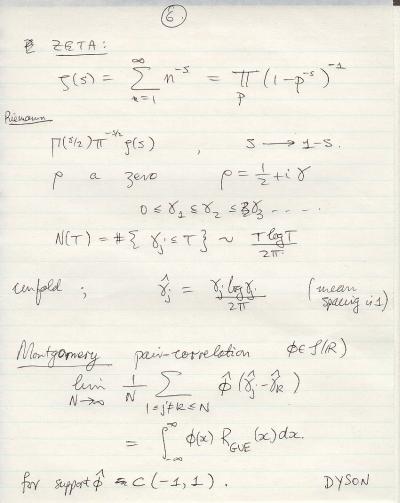 6.
ZETA:
ζ(s) = ∑_{n=1}^{∞} n^{-s} = ∏_p (1-p^{-s})^{-1}
Riemann
Γ(s/2) π^{-s/2} ζ(s) , s → 1-s.
ρ a zero ρ = 1/2 + iγ
0 ≤ γ_1 ≤ γ_2 ≤ γ_3 ....
N(T) = #{γ_j ≤ T} ~ T log T / 2π.
unfold ; γ̂_j = γ_j log γ_j / 2π (mean spacing is 1)
Montgomery pair-correlation φ ∈ S(R)
lim_{N→∞} 1/N ∑_{1≤j≠k≤N} φ̂(γ̂_j - γ̂_k)
= ∫_{-∞}^{∞} φ(x) R_{GUE}(x) dx.
for support φ̂ ⊂ (-1, 1). DYSON